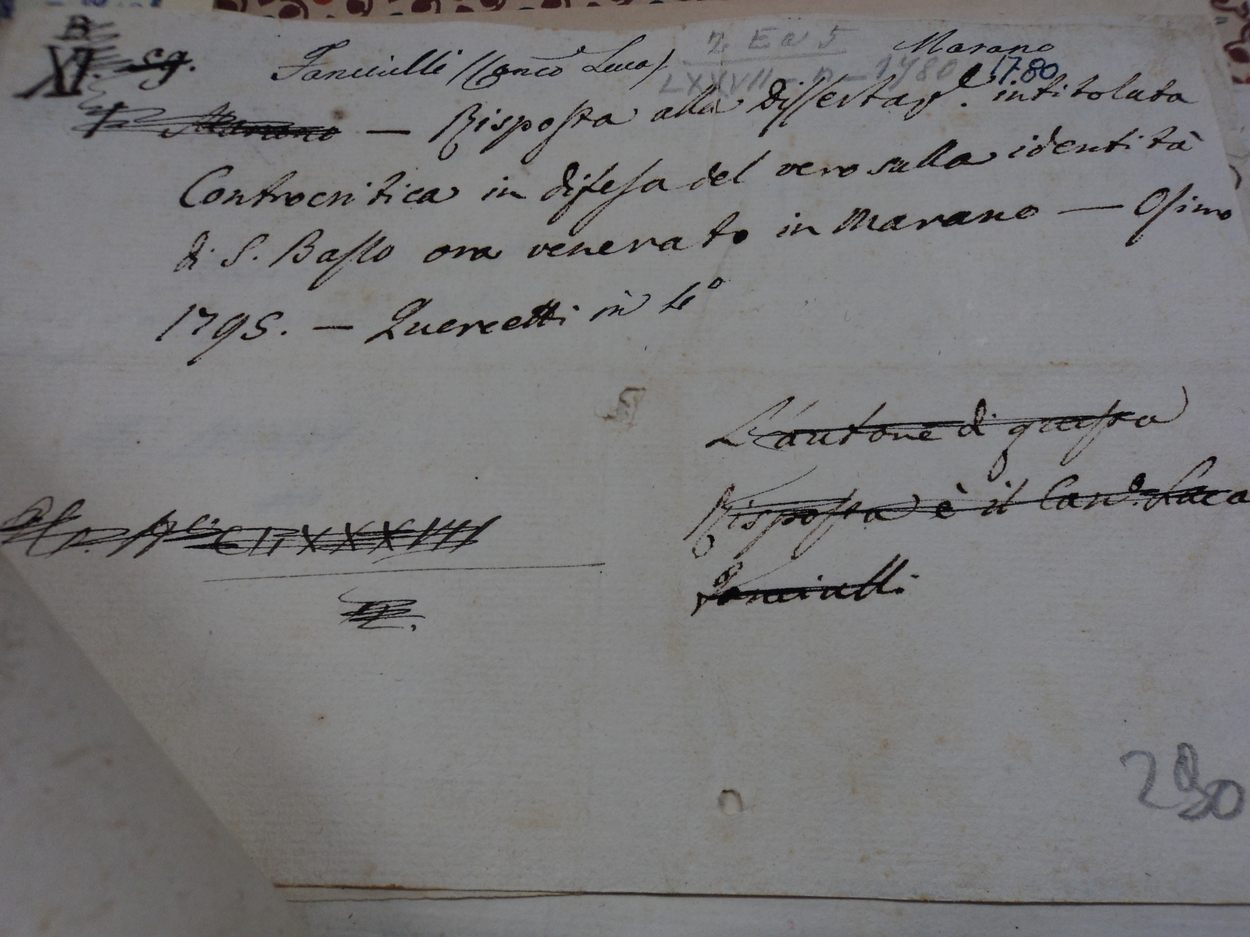 B
XI. sg. Fanciulli (Canco Luca) Marano
2 E a 5
LXXVII - D - 1780 1780
Marano — Risposta alla Dissertaze. intitolata
Controcritica in difesa del vero sulla identità
di S. Basso ora venerato in Marano — Osimo
1795. — Quercetti in 4°
L'autore di questa
Risposta è il Cano. Luca
Fanciulli.
CLXXXVIII
290